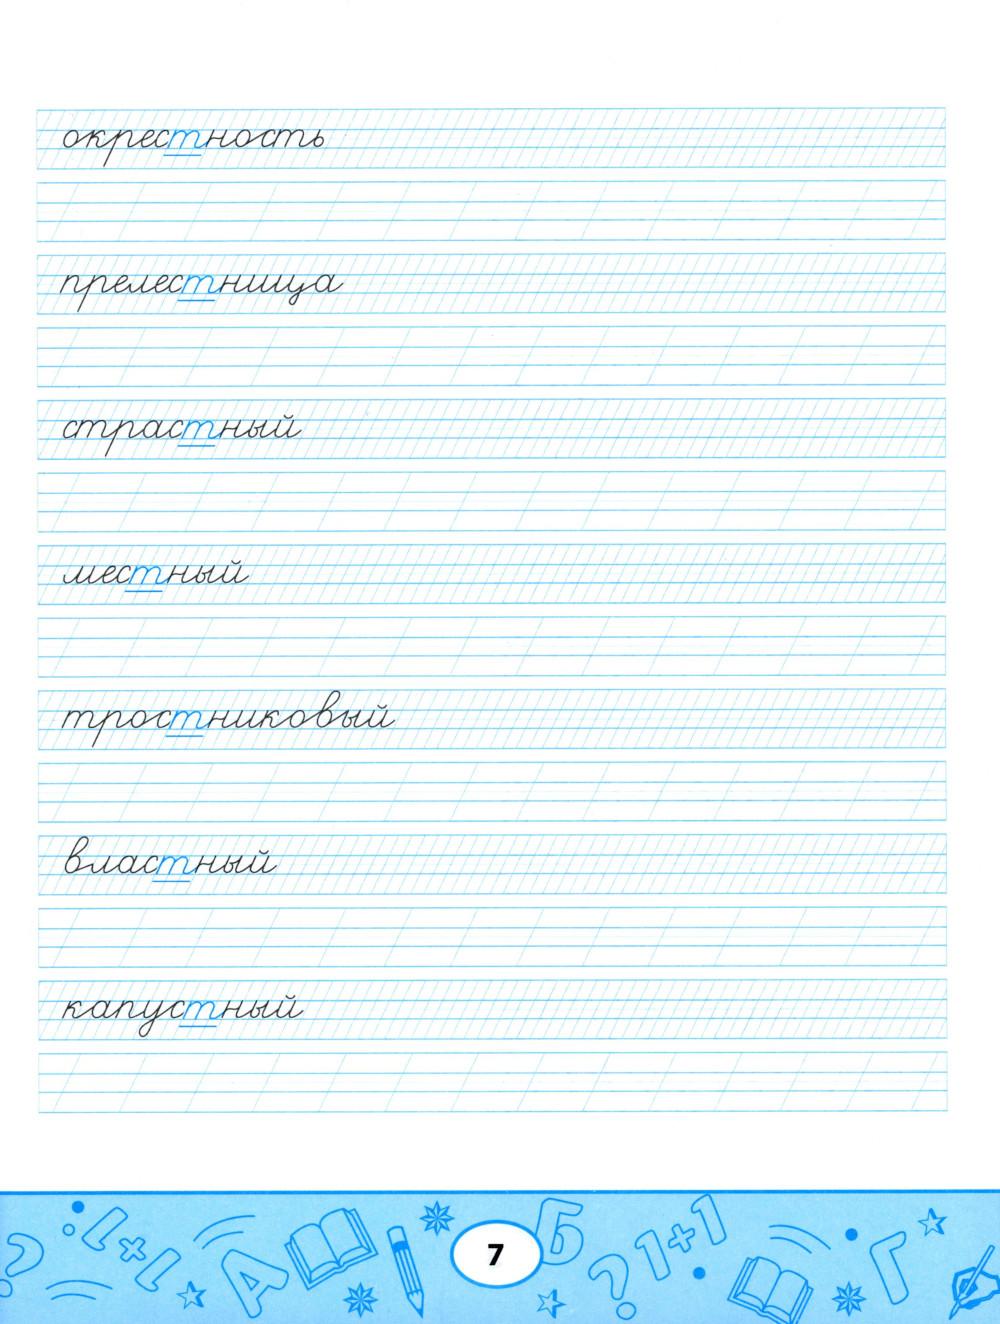 окрестность
прелестница
страстный
местный
тростниковый
властный
капустный
1+1
А
7
Б
1+1
Г